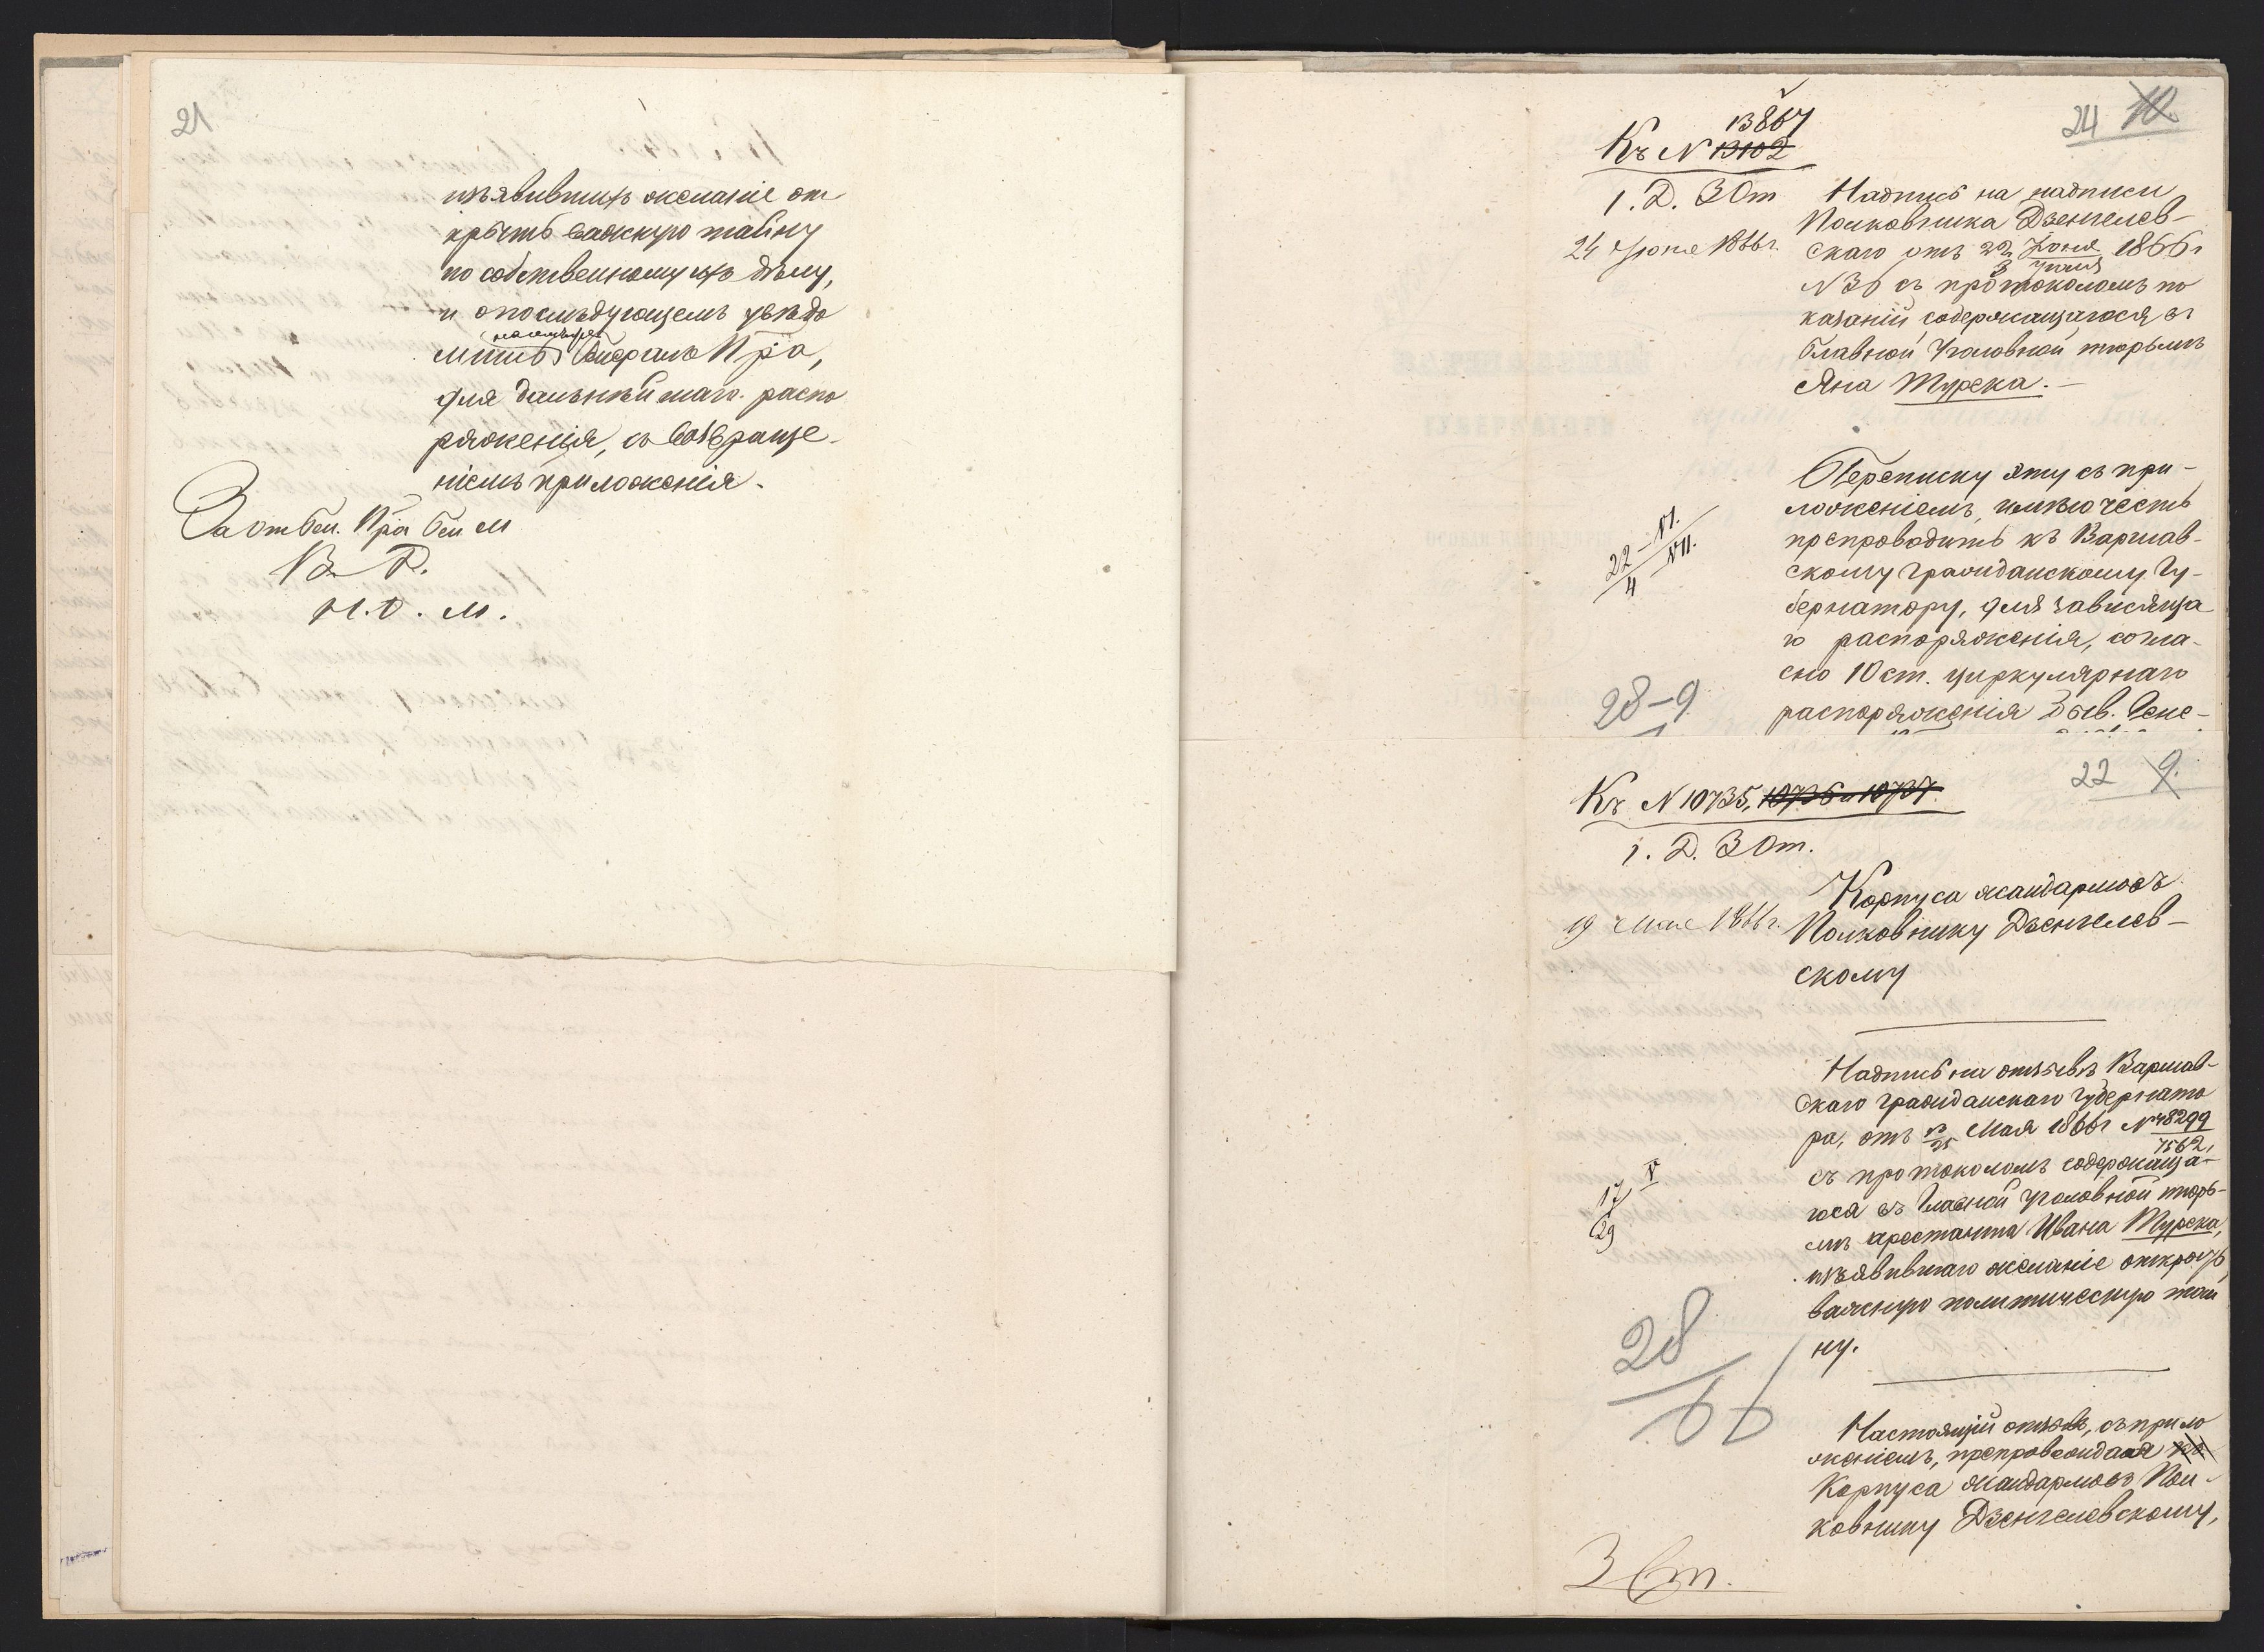 21
изъявившихъ желаніе от
крыть важную тайну
по собственному ихъ дѣлу,
и о послѣдующемъ увѣдо
мить Генералъ П-ра,
для дальнѣйшаго распо
ряженія, съ возвраще-
ніемъ приложенія.
За от Ген. П-ра Ген М
В. Р.
Н. О. М.
24 10
13867
Къ N 13102
1. Д. 3 От
24 Іюня 1866 г.
Надпись на надписи
Полковника Дзенгелев-
скаго отъ 22 Іюня 1866 г
3 Іюля
N 36 съ протоколомъ по
казаній содержащагося въ
Главной Уголовной тюрьмѣ
Яна Турека. -
Переписку эту съ при-
ложеніемъ, имѣю честь
препроводить къ Варшав-
скому Гражданскому Гу-
бернатору, для зависяща
го распоряженія, согла-
сно 10 ст. циркулярнаго
распоряженія Гене-
22 - VI.
4 - VII.
28-9
22 9.
Къ N 10735, 10736 и 10737.
1. Д. 3 От.
19 Мая 1866 г.
Корпуса жандармовъ
Полковнику Дзенгелев-
скому
Надпись на отзывѣ Варшав-
скаго Гражданскаго Губернато
ра, отъ 13/25 Мая 1866 г N 48299
7562,
съ протоколомъ содержаща-
гося въ Главной Уголовной тюрь-
мѣ арестанта Ивана Турека,
изъявившаго желаніе открыть
важную политическую тай
ну.
17 V
29
28
66
Настоящій отзывъ, съ прило
женіемъ, препровождая къ
Корпуса Жандармовъ Пол-
ковнику Дзенгелевскому,
3 Ст.